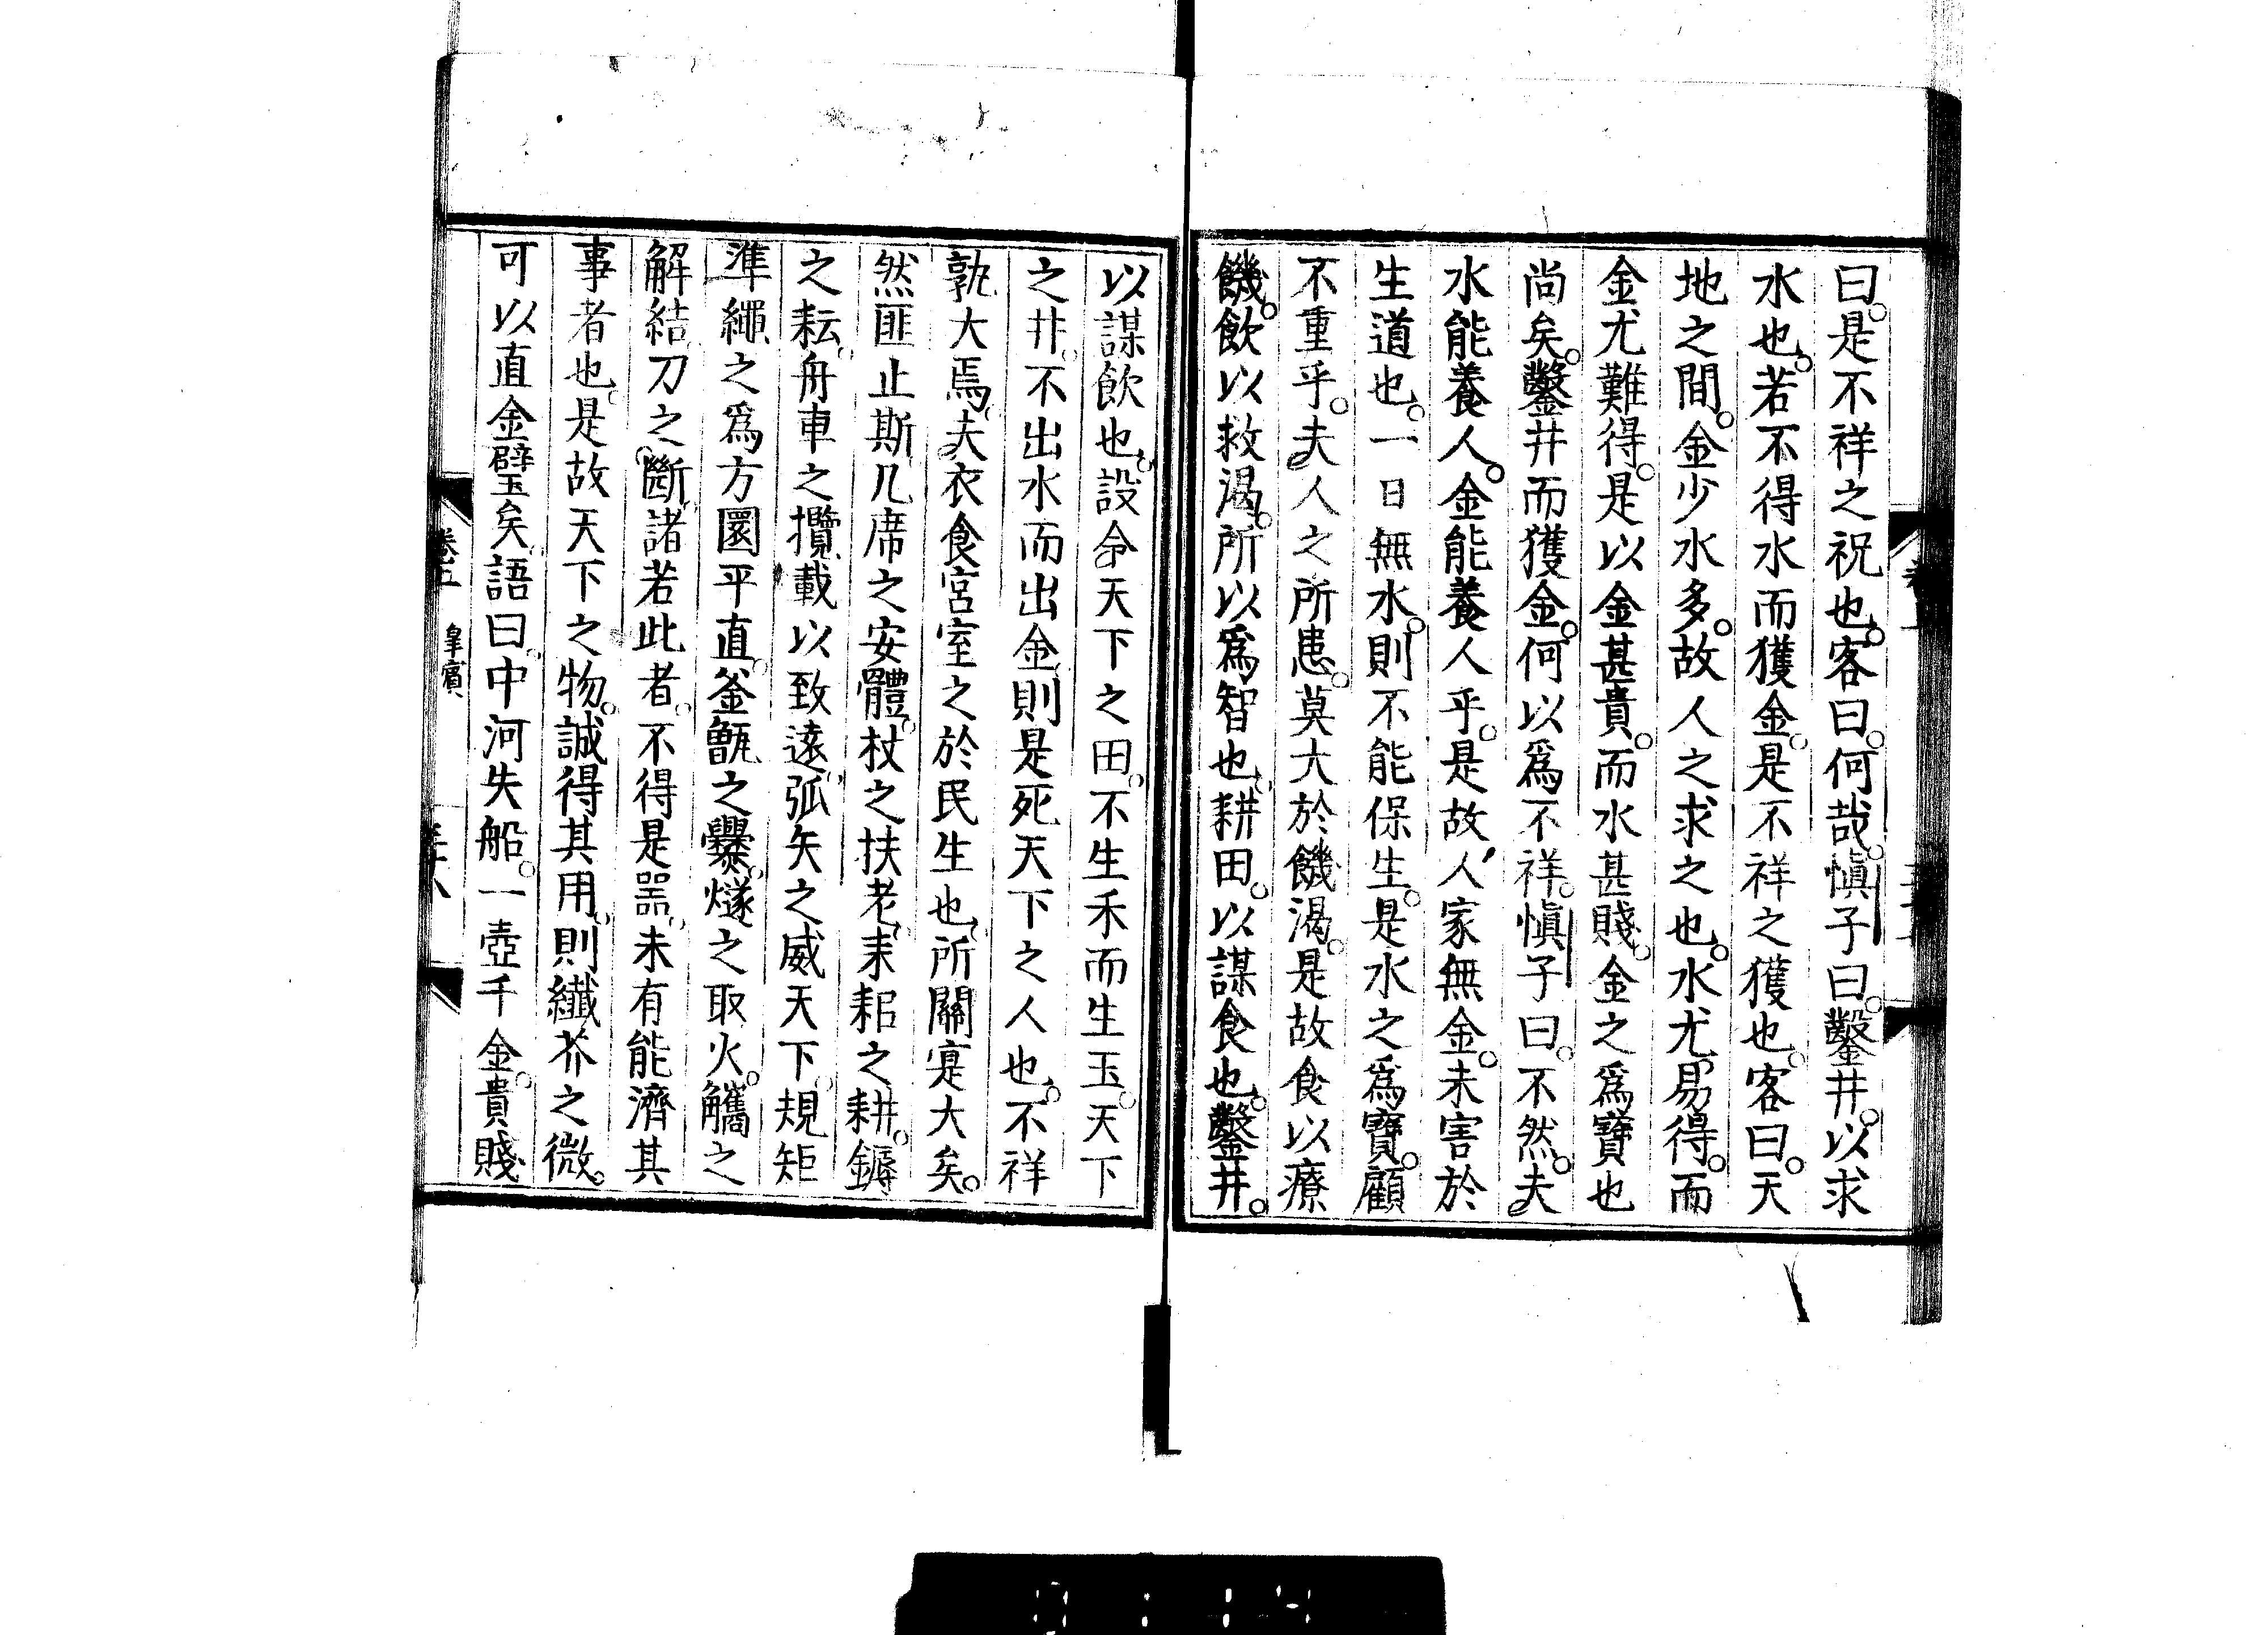 曰。是不祥之祝也。客曰。何哉。愼子曰。鑿井。以求
水也。若不得水而獲金。是不祥之獲也。客曰。天
地之間。金少水多。故人之求之也。水尤易得。而
金尤難得。是以金甚貴。而水甚賤。金之爲寶也
尚矣。鑿井而獲金。何以爲不祥。愼子曰。不然。夫
水能養人。金能養人乎。是故人家無金。未害於
生道也。一日無水。則不能保生。是水之爲寶。顧
不重乎。夫人之所患。莫大於饑渴。是故食以療
饑。飲以救渴。所以爲智也。耕田。以謀食也。鑿井。
以謀飲也。設令天下之田。不生禾而生玉。天下
之井。不出水而出金。則是死天下之人也。不祥
孰大焉。夫衣食宮室之於民生也。所關寔大矣。
然匪止斯。几席之安體。杖之扶老。耒耜之耕。鎒
之耘。舟車之攬載以致遠。弧矢之威天下。規矩
準繩之爲方圜平直。釜甑之爨。燧之取火。觿之
解結。刀之斷。諸若此者。不得是噐。未有能濟其
事者也。是故天下之物。誠得其用。則纎芥之微。
可以直金璧矣。語曰。中河失船。一壺千金。貴賤
卷上 皐賓